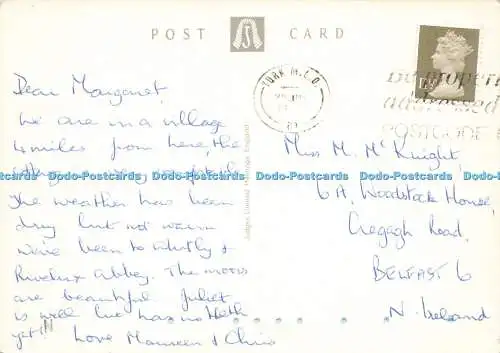 POST CARD
YORK M.L.O.
1½
properly
addressed
POSTCODE
Dear Margaret,
We are in a village
4 miles from here, the
cottage is very
The weather has been
dry but not warm
We've been to Whitby &
Rivelux Abbey. The moors
are beautiful Juliet
is well but has no teeth
yet!! Love Maureen & Chris
Judges Limited Hastings, England
Miss M. McKnight
6A, Woodstock House,
Cregagh Road,
BELFAST 6
N. Ireland
Dodo-Postcards Dodo-Postcards Dodo-Postcards Dodo-Postcards Dodo-Postcards